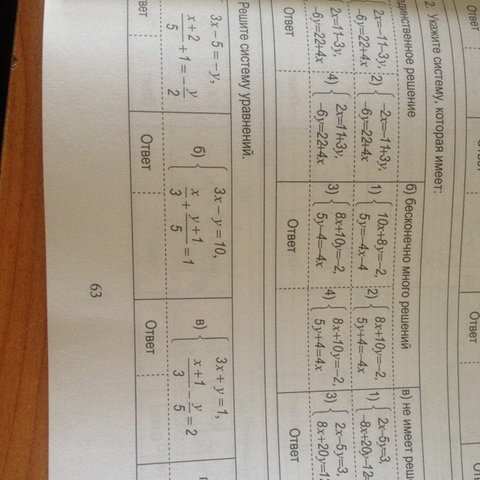 Ответ
2. Укажите систему, которая имеет:
единственное решение
б) бесконечно много решений
в) не имеет реш
1) { 2x=-11-3y, -6y=22+4x
2) { -2x=-11+3y, -6y=22+4x
1) { 10x+8y=-2, 5y=-4x-4
2) { 8x+10y=-2, 5y+4=-4x
1) { 2x-5y=3, -8x+20y=-12
2x=11-3y, -6y=22+4x
4) { 2x=11+3y, -6y=22+4x
3) { 8x+10y=-2, 5y-4=-4x
4) { 8x+10y=-2, 5y+4=4x
3) { 2x-5y=3, 8x+20y=1
Ответ
Ответ
Ответ
Решите систему уравнений.
3x-5=-y, (x+2)/5+1=-y/2
б) { 3x-y=10, x/3+(y+1)/5=1
в) { 3x+y=1, (x+1)/3-y/5=2
Ответ
Ответ
Ответ
63